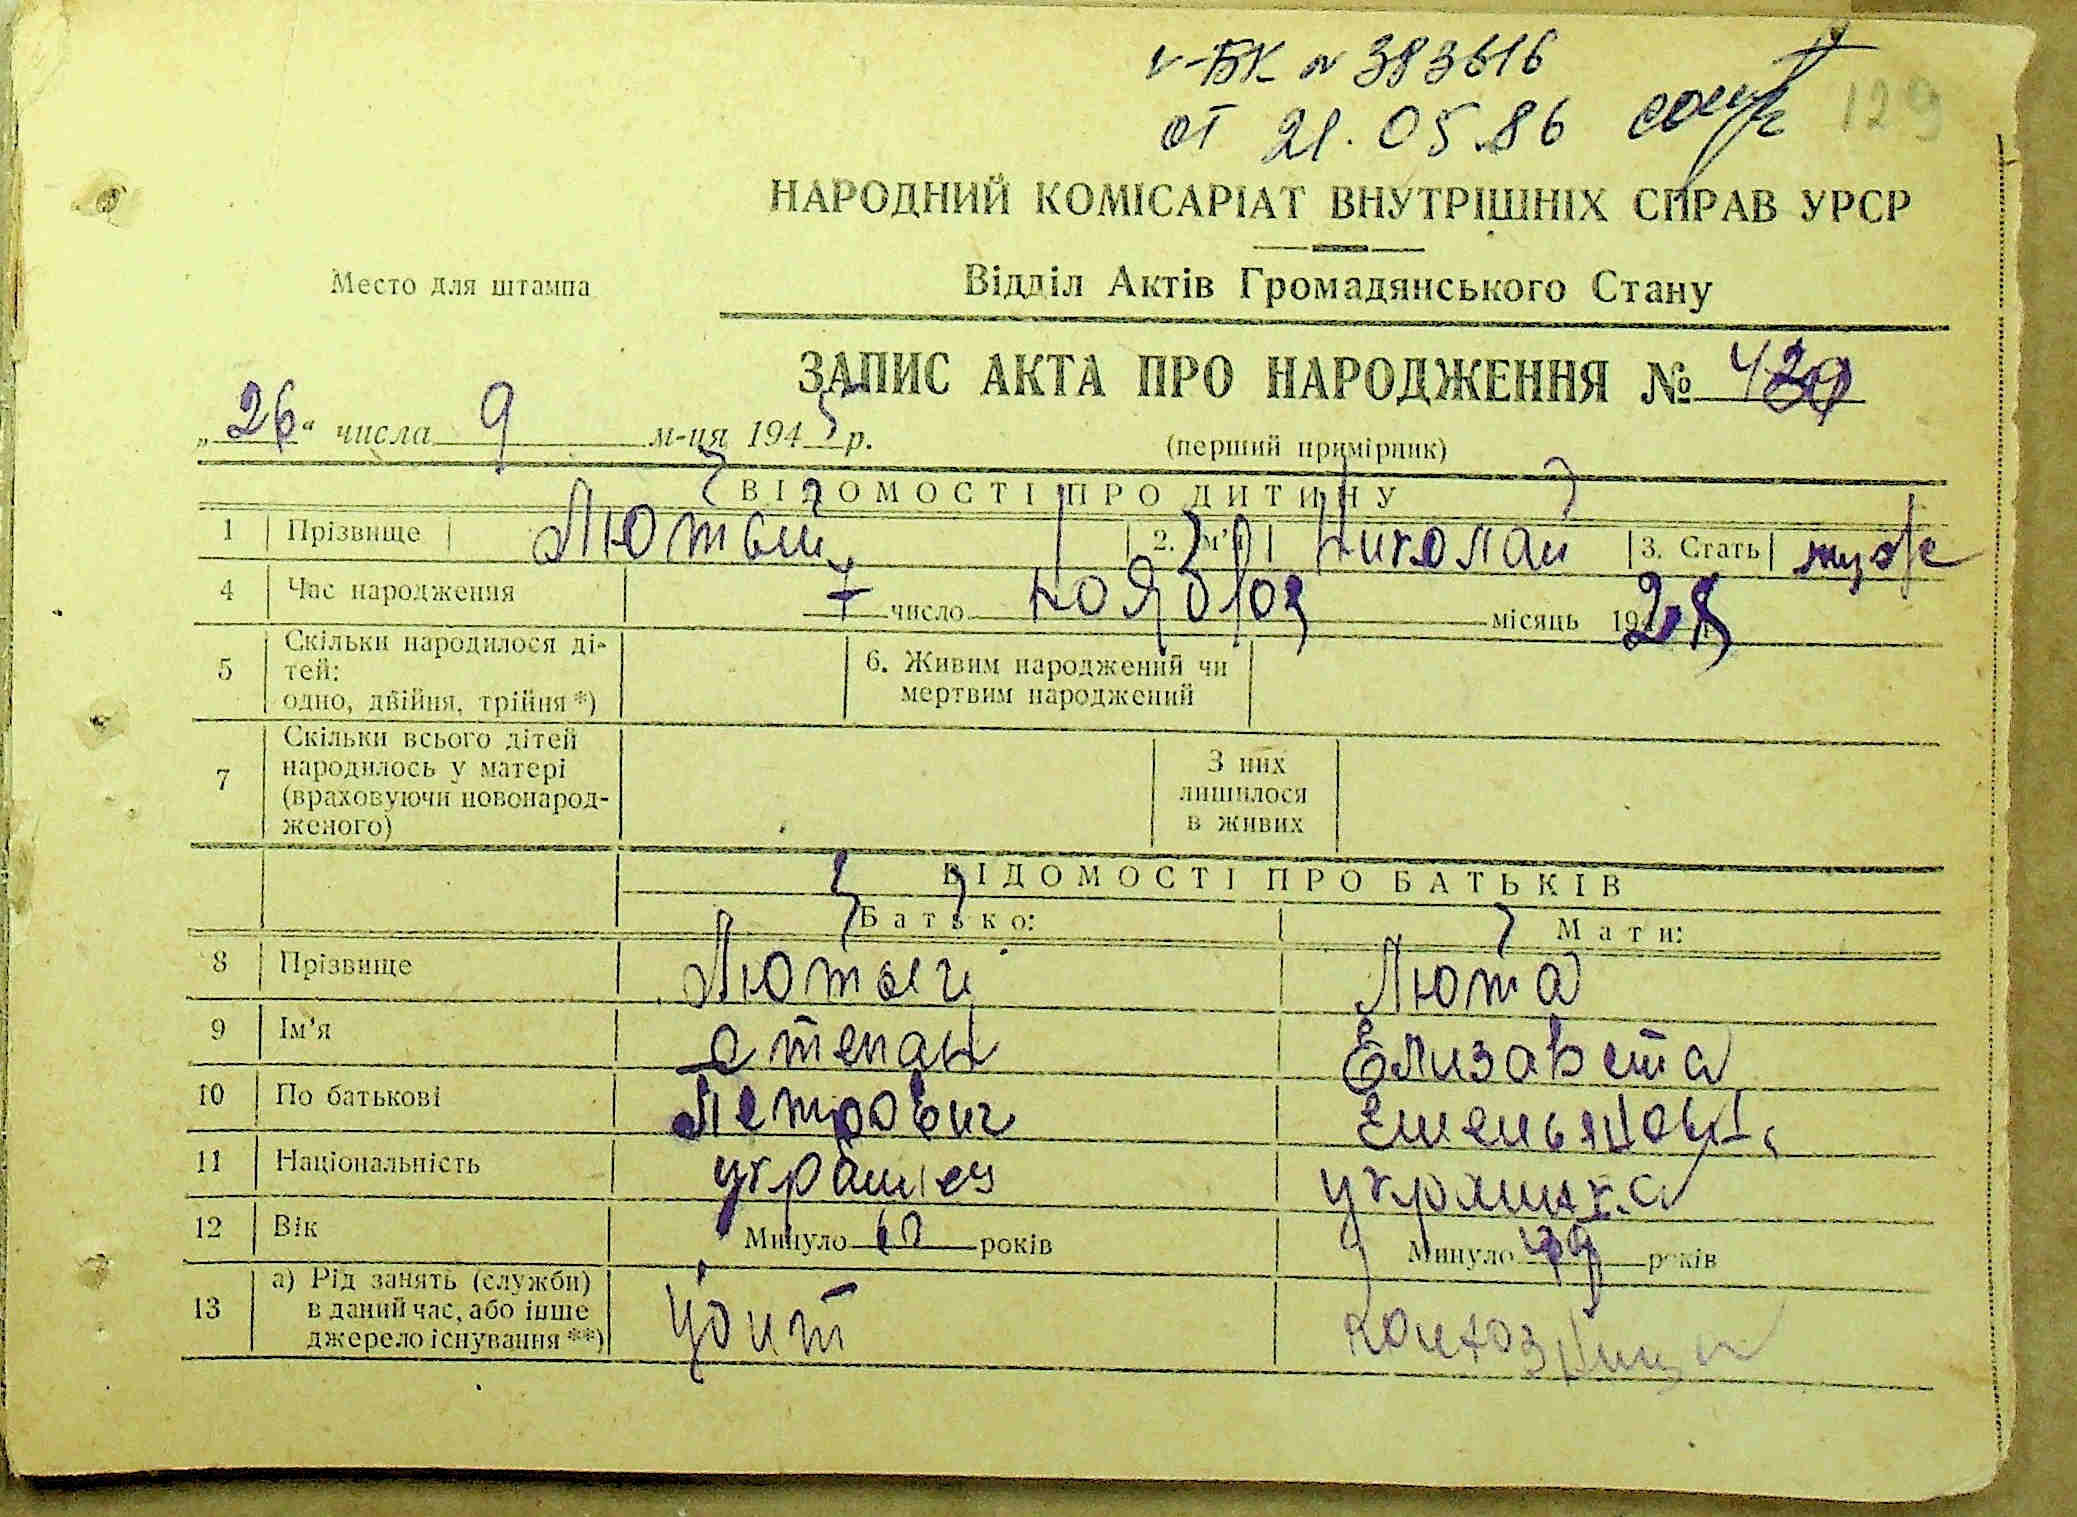 V-БК № 383616
от 21.05.86
129
НАРОДНИЙ КОМІСАРІАТ ВНУТРІШНІХ СПРАВ УРСР
Место для штампа
Відділ Актів Громадянського Стану
ЗАПИС АКТА ПРО НАРОДЖЕННЯ №
„26“ числа 9 м-ця 1945 р.
(перший примірник)
ВІДОМОСТІ ПРО ДИТИНУ
1 Прізвище Лютый 2. Ім'я Николай 3. Стать муж
4 Час народження 7 число ноября місяць 1928
5 Скільки народилося ді-
тей:
одно, двійня, трійня *)
6. Живим народжений чи
мертвим народжений
7 Скільки всього дітей
народилось у матері
(враховуючи новонарод-
женого)
З них
лишилося
в живих
ВІДОМОСТІ ПРО БАТЬКІВ
Батько: Мати:
8 Прізвище Лютый Люта
9 Ім'я Степан Елизавета
10 По батькові Петрович Емельяновн.
11 Національність украинец украинка
12 Вік Минуло років Минуло 39 років
13 а) Рід занять (служби)
в даний час, або інше
джерело існування **)
убит колхозница